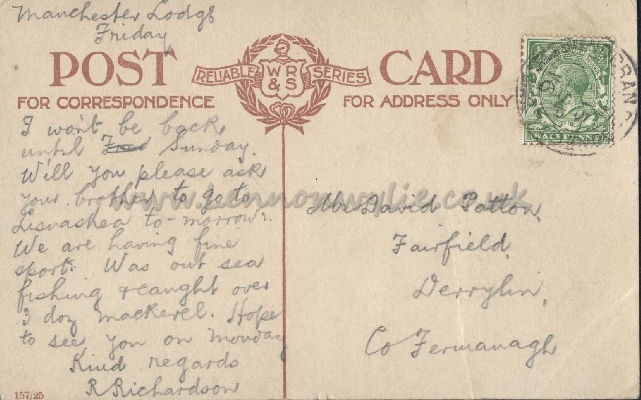 Manchester Lodge
Friday
POST CARD
RELIABLE WR & S SERIES
FOR CORRESPONDENCE
FOR ADDRESS ONLY
HALFPENNY
I won't be back
until Sunday.
Will you please ask
your brother to go to
Lisnaskea to-morrow.
We are having fine
sport. Was out sea
fishing & caught over
3 doz mackerel. Hope
to see you on Monday
Kind regards
R Richardson
157/25
Mr David Patton,
Fairfield,
Derrylin,
Co Fermanagh